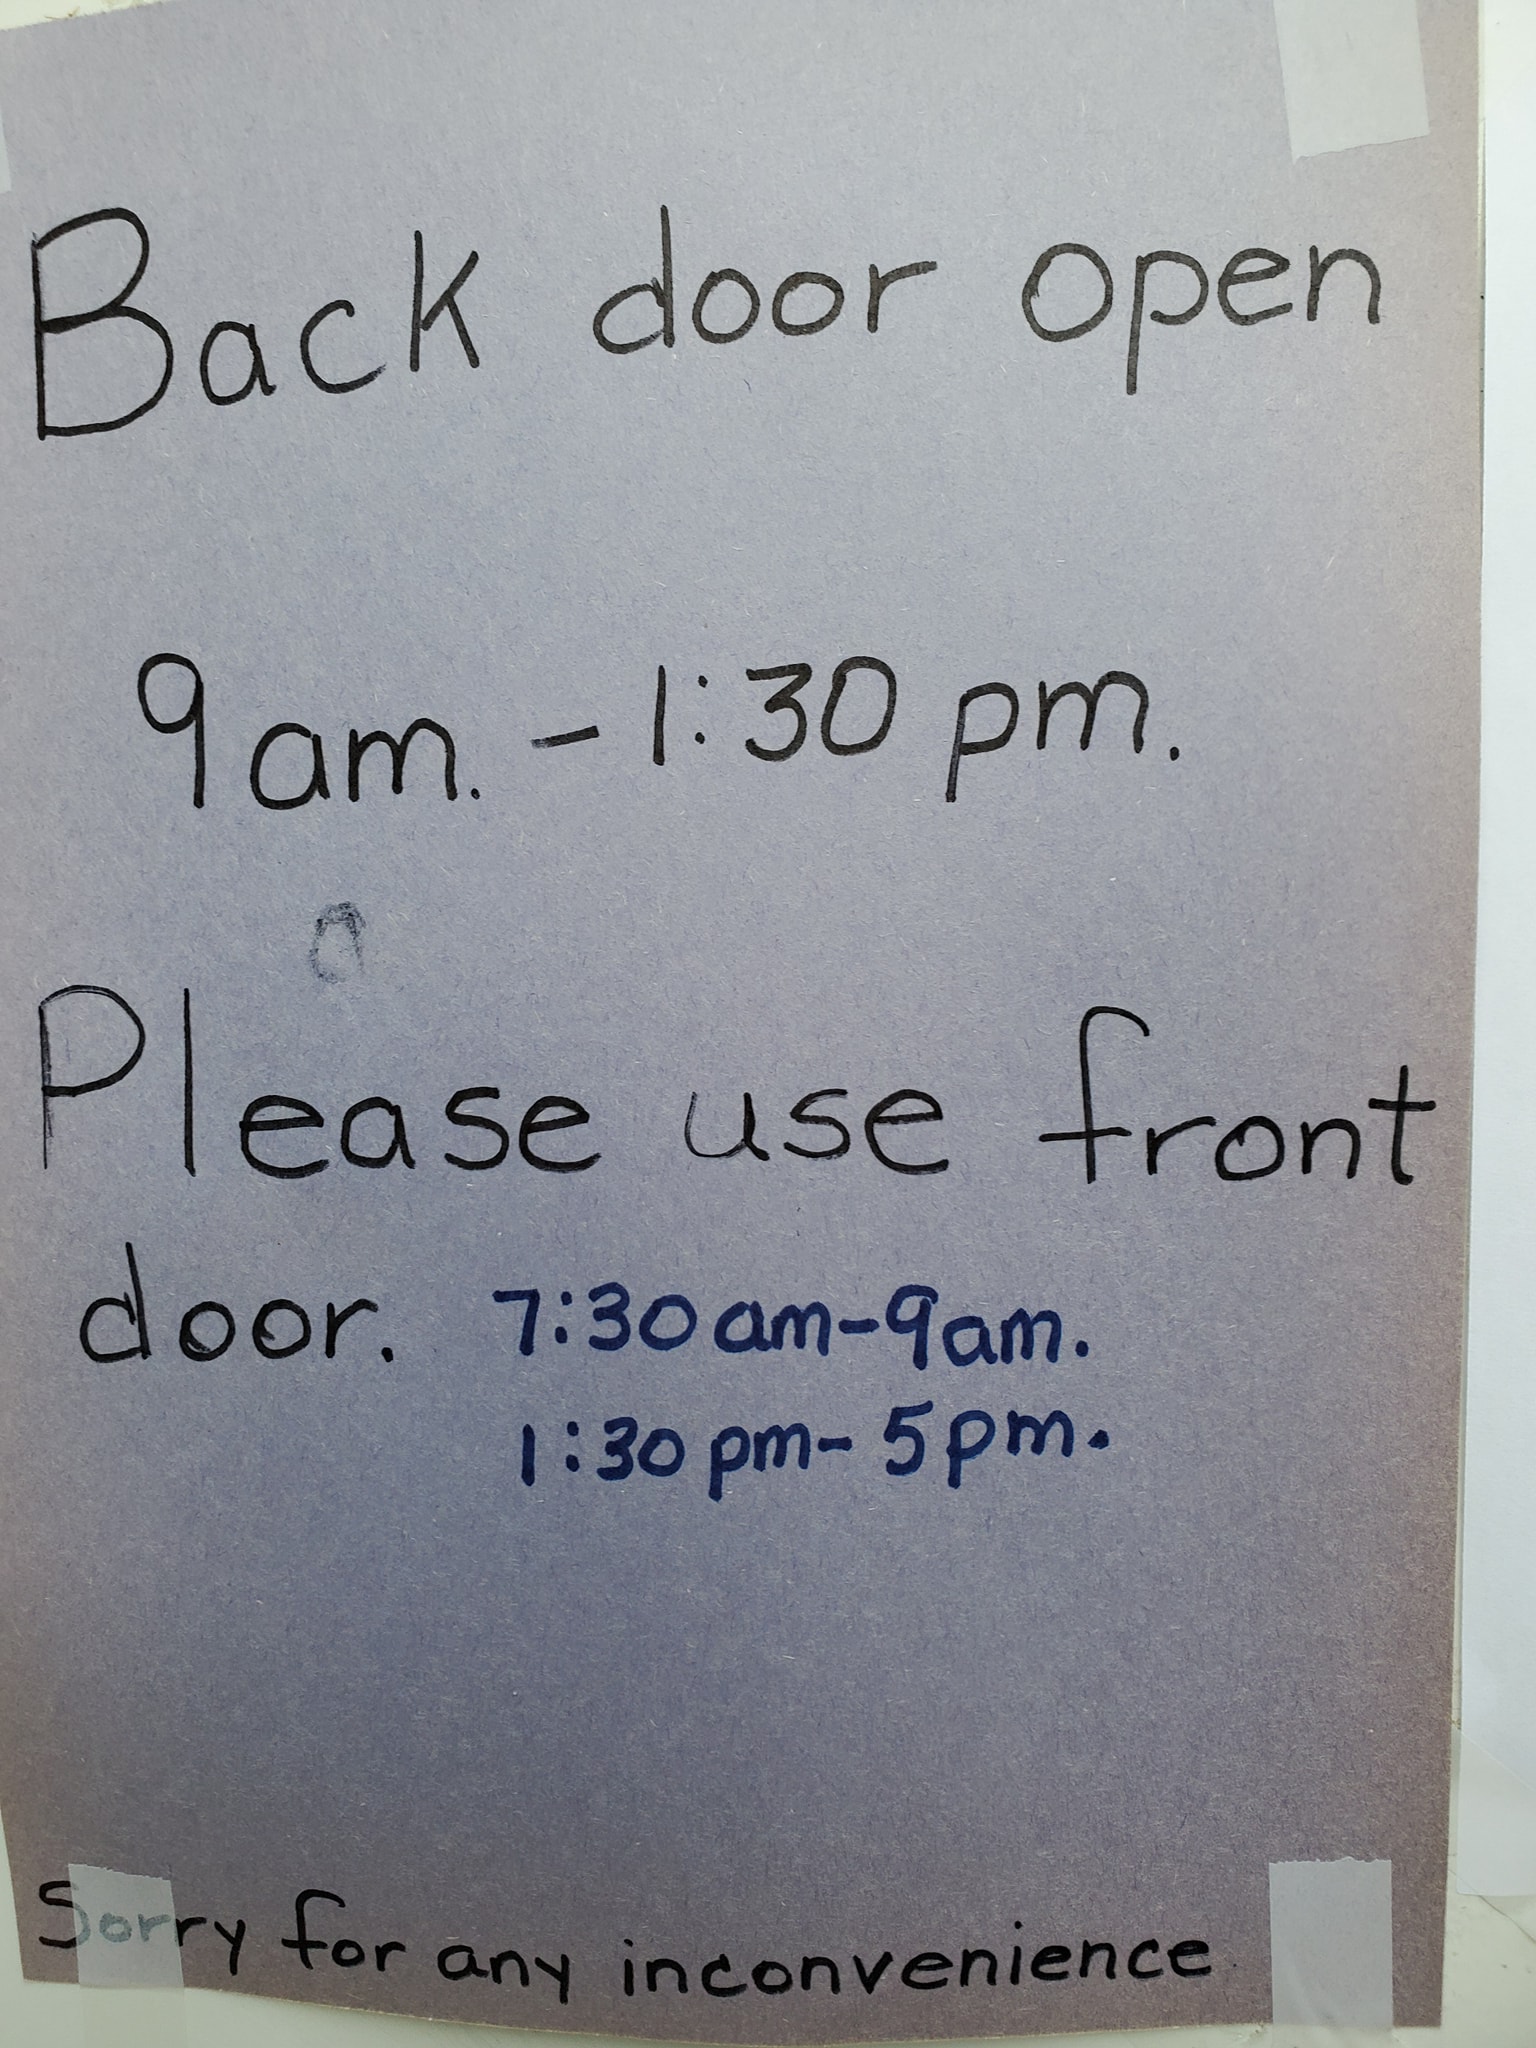 Back door open
9am. - 1:30 pm.
Please use front
door. 7:30am-9am.
1:30pm-5pm.
Sorry for any inconvenience